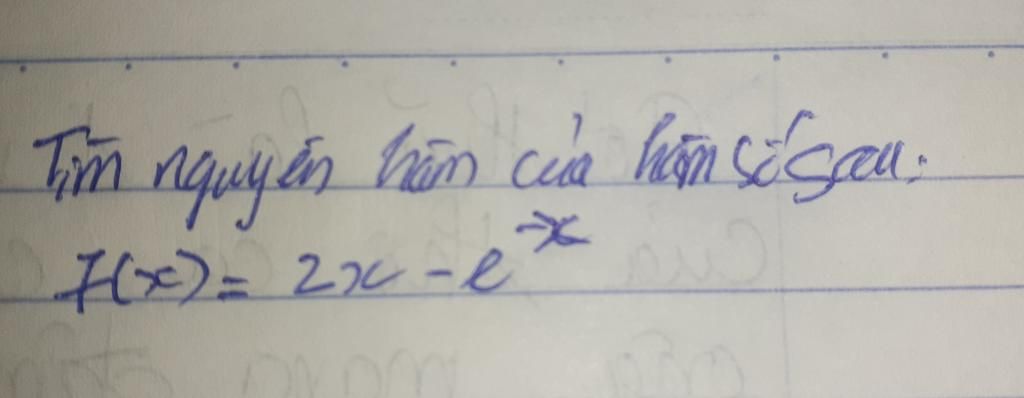 Tìm nguyên hàm của hàm số sau:
f(x) = 2x - e^{-x}